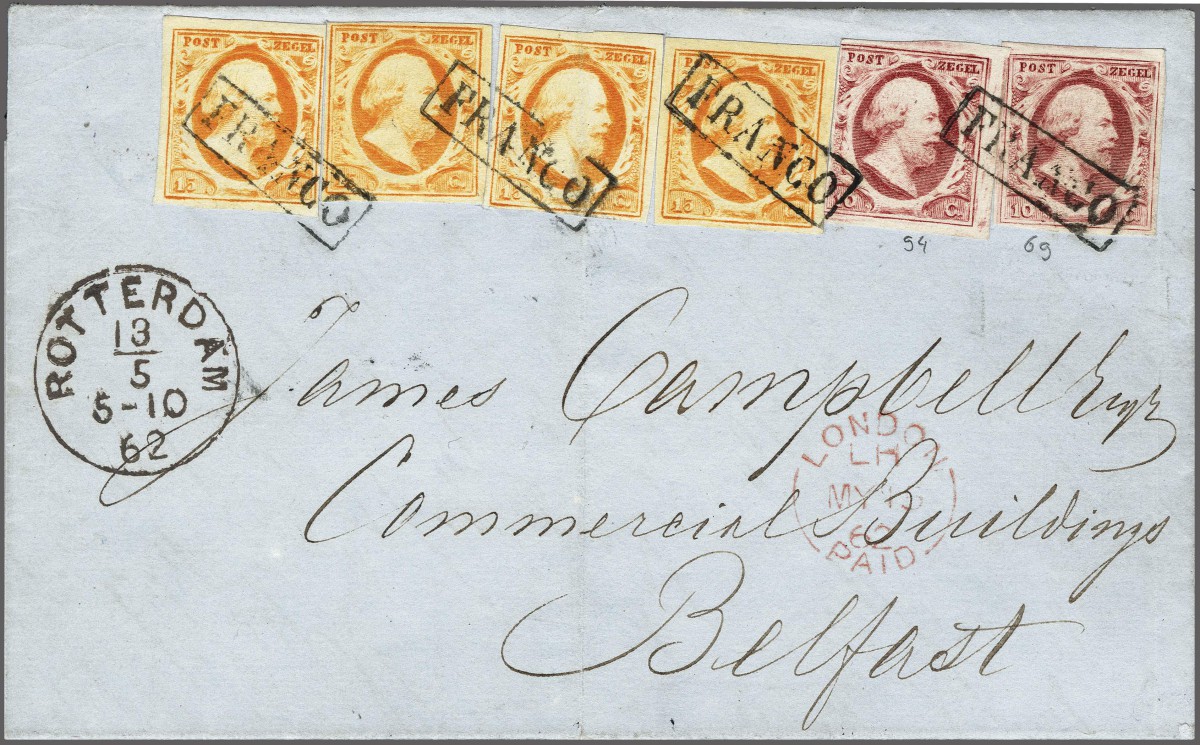 POST ZEGEL
15
FRANCO
POST ZEGEL
POST ZEGEL
FRANCO
15 C.
POST ZEGEL
15 C.
FRANCO
POST ZEGEL
C.
POST ZEGEL
10
FRANCO
94
69
ROTTERDAM
13
5
5-10
62
James Campbell Esqr
Commercial Buildings
Belfast
LONDON
LH
MY 15
62
PAID